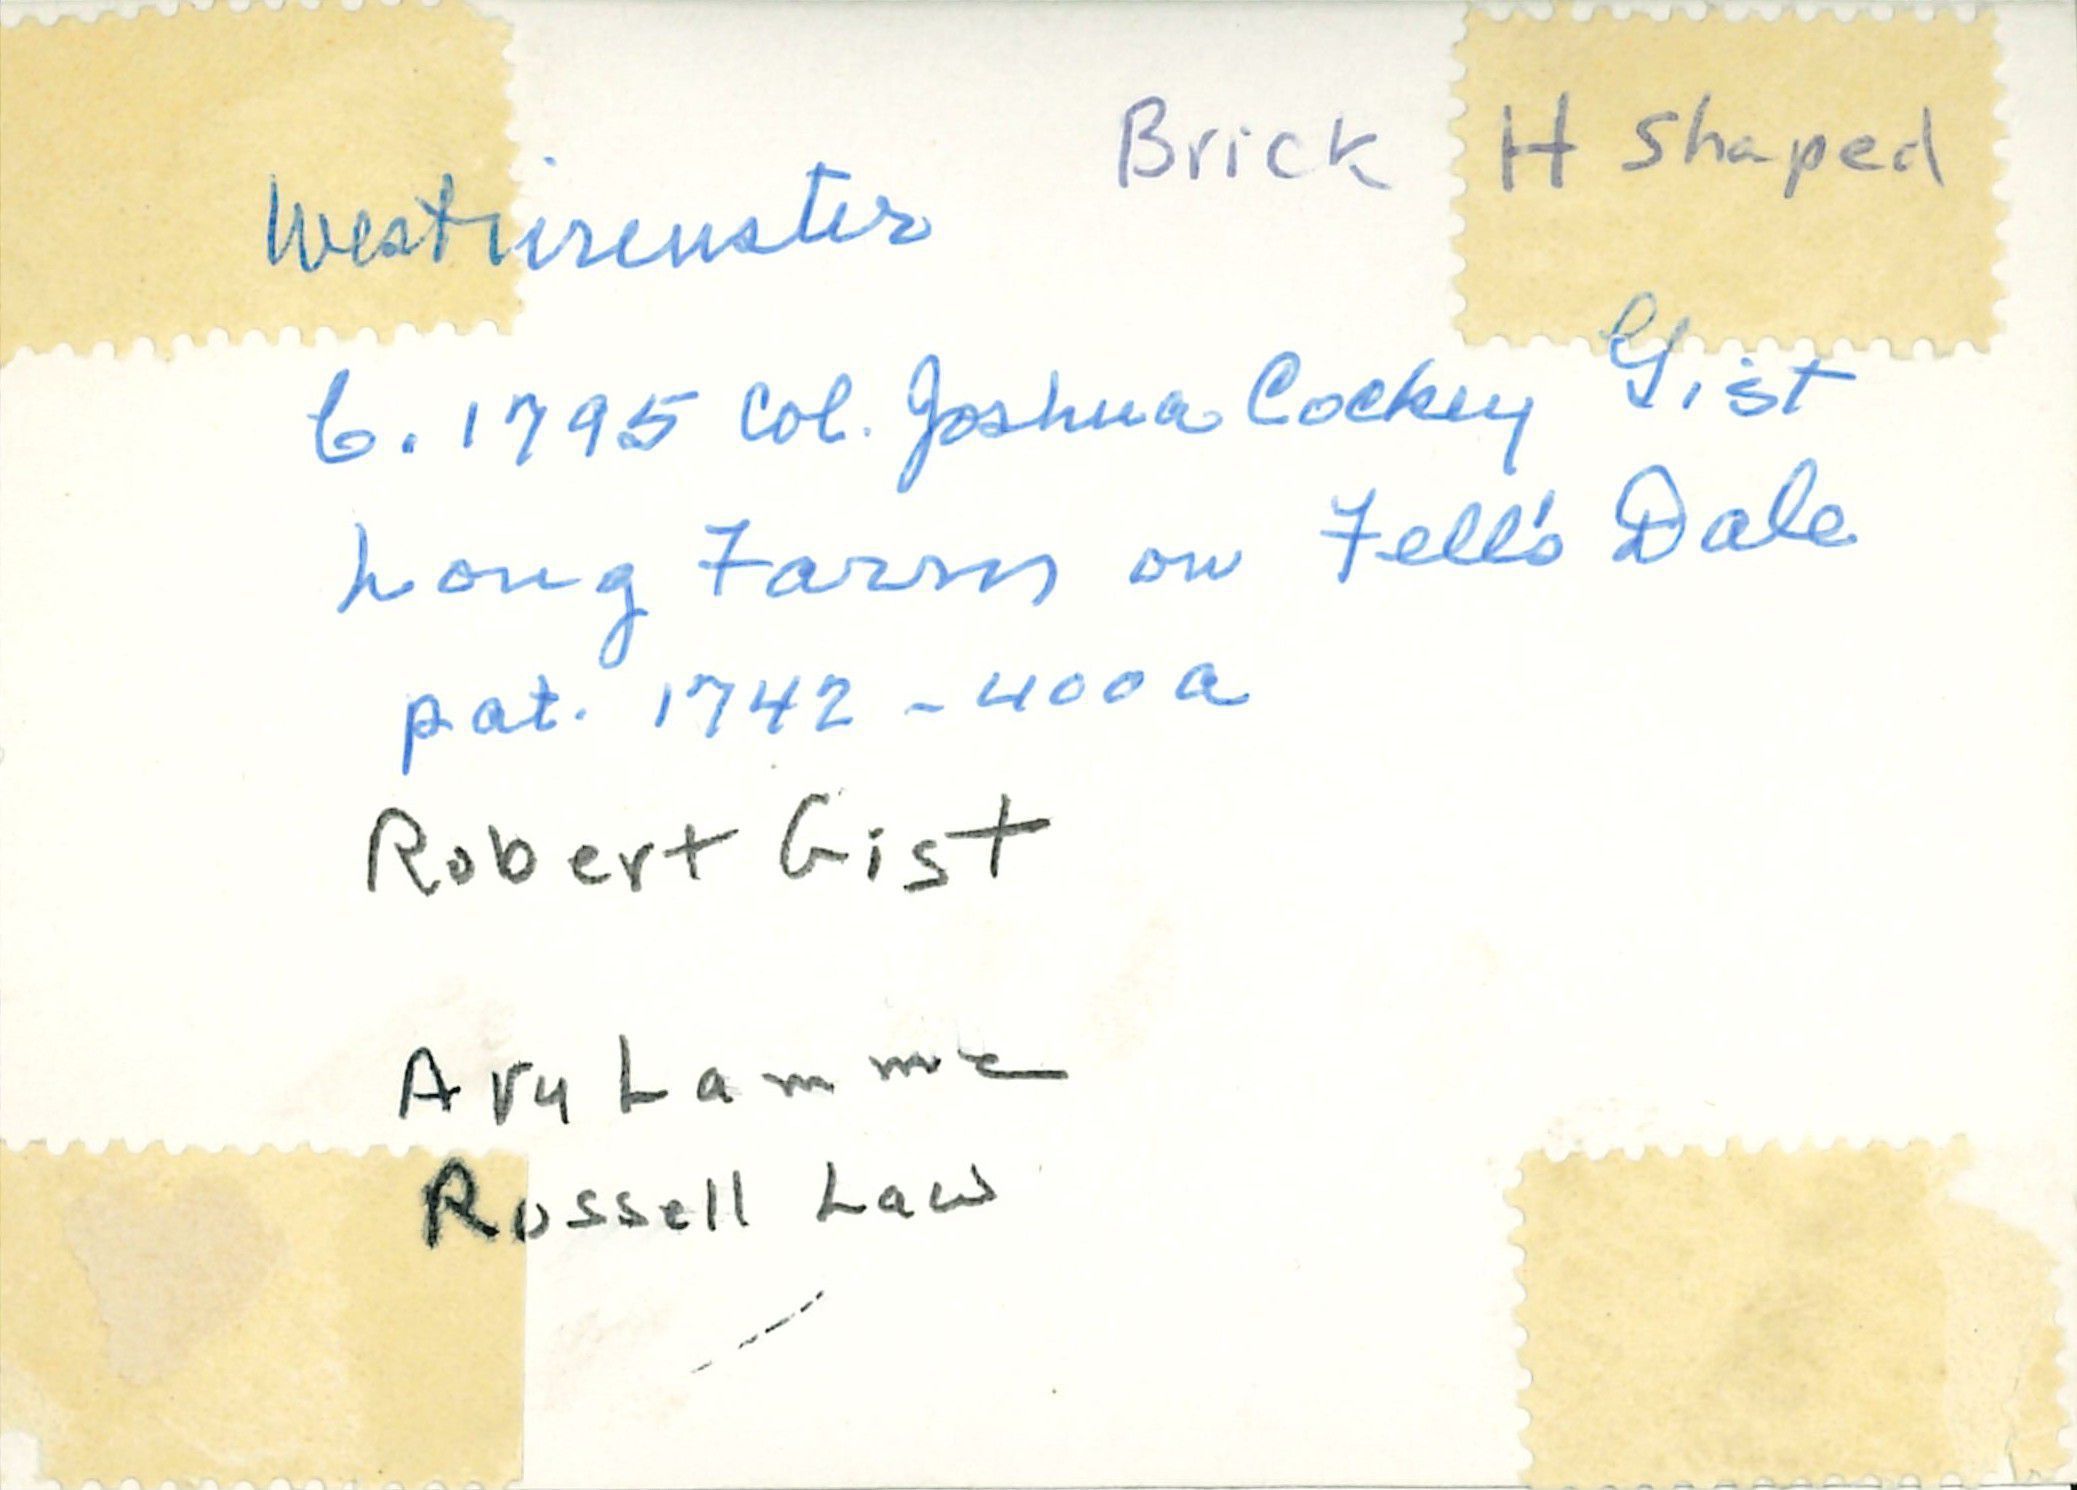 Brick H Shaped
Westminster
b. 1795 Col. Joshua Cockey Gist
Long Farm on Fell's Dale
pat. 1742 - 400 a
Robert Gist
Avy Lamme
Russell Law